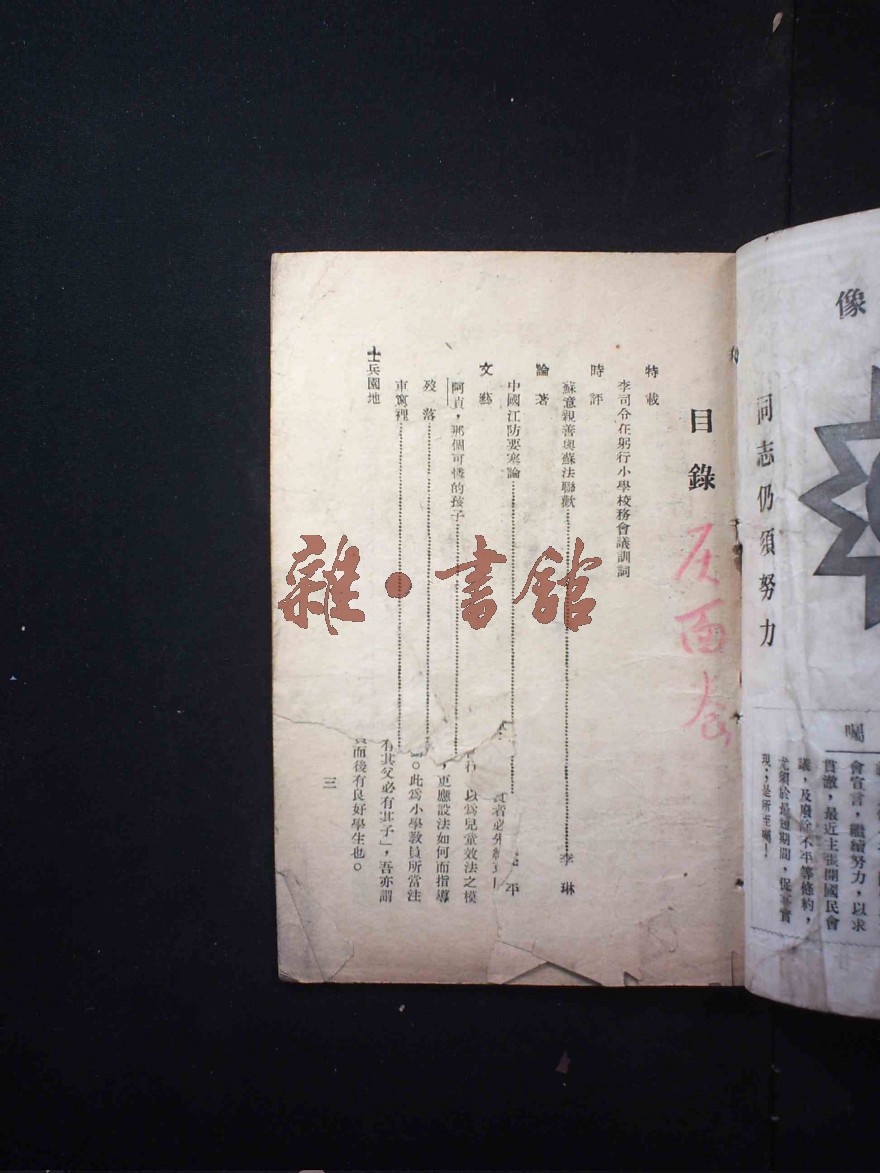 像
同志仍須努力
囑
會宣言，繼續努力，以求
貫澈，最近主張開國民會
議，及廢除不平等條約，
尤須於最短期間，促其實
現；是所至囑！
目錄
反面卷
特載
李司令在躬行小學校務會議訓詞
時評
蘇意親善與蘇法聯歡……李琳
論著
中國江防要塞論……平
文藝
阿貞，那個可憐的孩子……
歿落……
車窩裡……
士兵園地
以爲兒童效法之模
，更應設法如何而指導
。此爲小學教員所當注
有其父必有其子」，吾亦謂
而後有良好學生也。
三
雜·書館